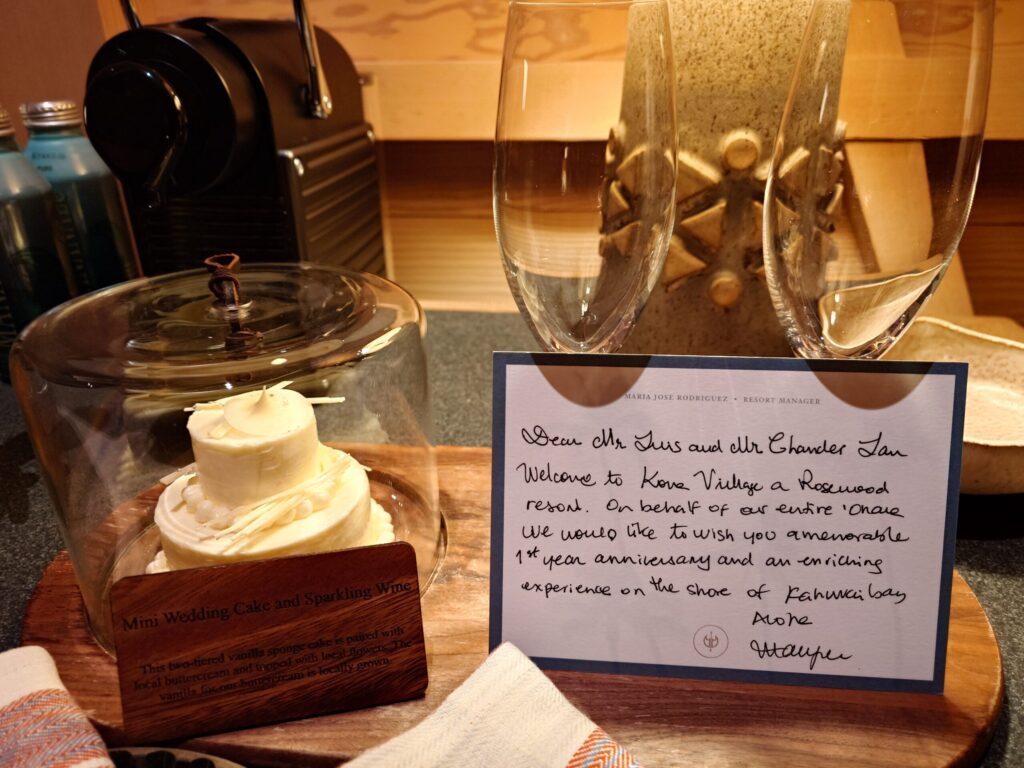 MARIA JOSE RODRIGUEZ • RESORT MANAGER
Dear Mr Luis and Mr Chander Lan
Welcome to Kona Village a Rosewood
resort. On behalf of our entire 'Ohana
We would like to wish you a memorable
1st year anniversary and an enriching
experience on the shore of Kahuwai bay
Aloha
Mini Wedding Cake and Sparkling Wine
This two-tiered vanilla sponge cake is paired with
local buttercream and topped with local flowers. The
vanilla for our buttercream is locally grown.